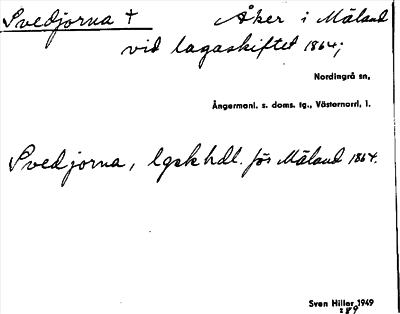 Svedjorna + Åker i Mäland
vid lagaskiftet 1864;
Nordingrå sn,
Ångermanl. s. doms. tg., Västernorrl. l.
Svedjorna, lgskhdl. för Mäland 1864.
Sven Hiller 1949
:89